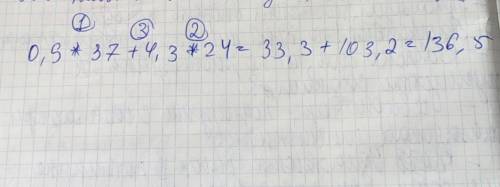 ① ③ ②
0,9 * 37 + 4,3 * 24 = 33,3 + 103,2 = 136,5